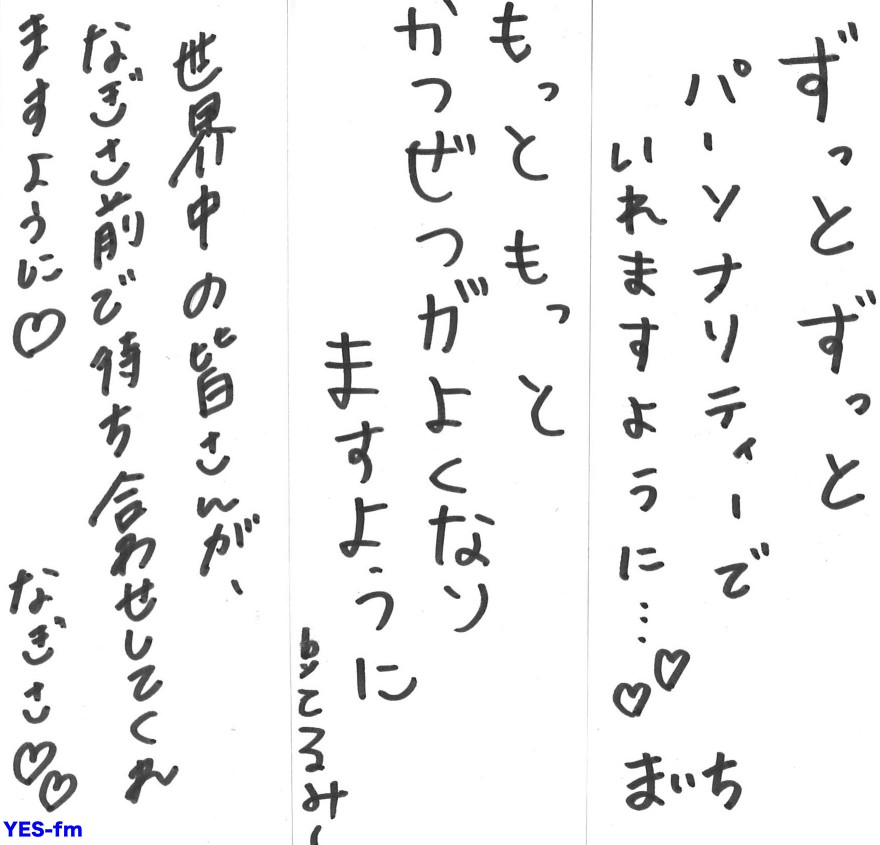 ずっとずっと
パーソナリティーで
いれますように…♡♡
まいち
もっともっと
かつぜつがよくなり
ますように
byてるみー
世界中の皆さんが、
なぎさ前で待ち合わせしてくれ
ますように♡
なぎさ♡♡
YES-fm